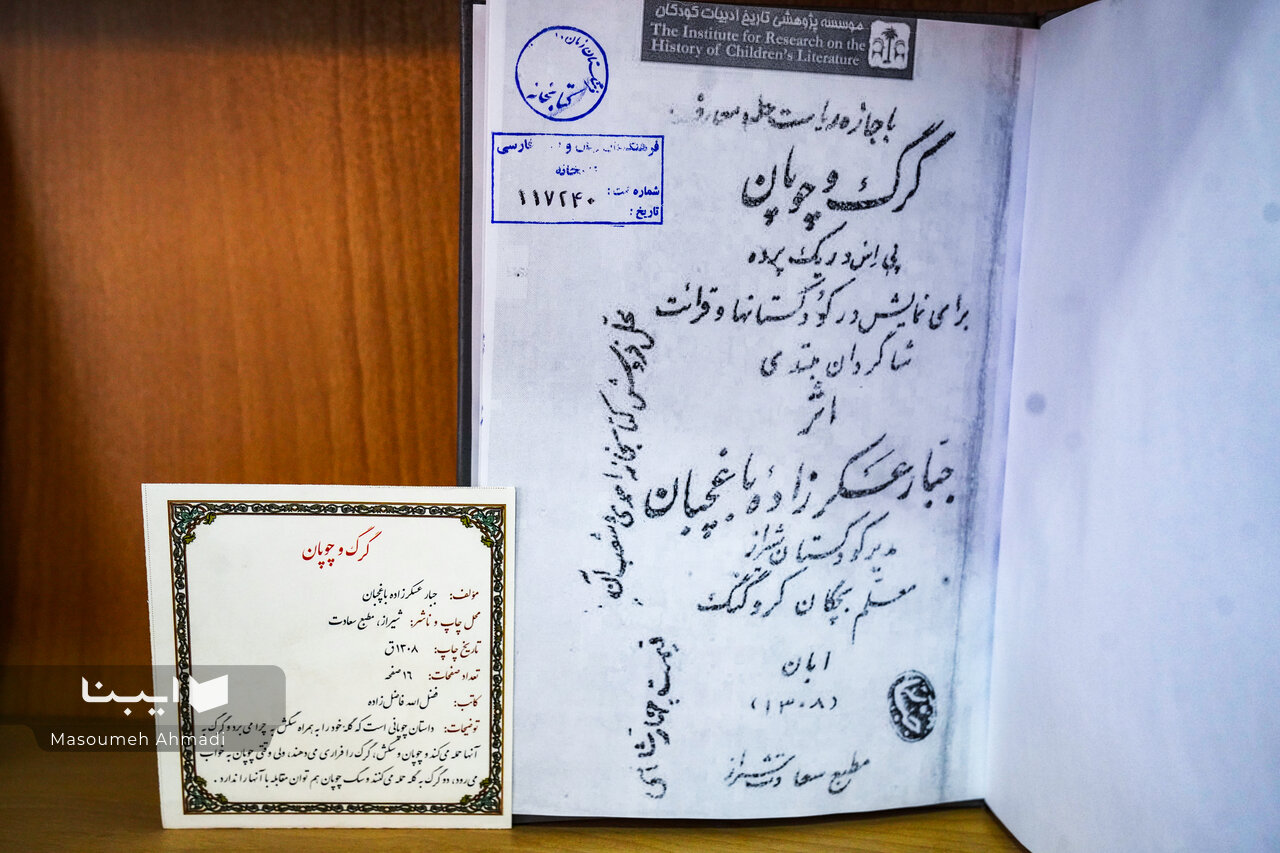 موسسه پژوهشی تاریخ ادبیات کودکان
The Institute for Research on the
History of Children's Literature
کتابخانه
فرهنگستان زبان و فارسی
خانه
شماره ثبت : ۱۱۷۲۴۰
تاریخ :
با جازه ریاست
گرگ و چوپان
پی اس در یک پرده
برای نمایش در کودکستانها و قرائت
شاگردان مبتدی
اثر
جبار عسکرزادهٔ باغچبان
مدیر کودکستان شیراز
معلم بچگان کر و گنگ
ابان
(۱۳۰۸)
مطبع سعادت شیراز
محل فروش کتابخانه احمدی و شعب آن
قیمت
گرگ و چوپان
مؤلف: جبار عسکرزاده باغچبان
محل چاپ و ناشر: شیراز، مطبع سعادت
تاریخ چاپ: ۱۳۰۸ق
تعداد صفحات: ۱۶ صفحه
کاتب: فضل الله فاضل زاده
توضیحات: داستان چوپانی است که گله خود را به همراه سگش به چرا می برد و گرگ به
آنها حمله می کند و چوپان و سگش، گرگ را فراری می دهند، ولی وقتی چوپان به خواب
می رود، دو گرگ به گله حمله می کنند و سگ چوپان هم توان مقابله با آنها را ندارد .
ایبنا
Masoumeh Ahmadi